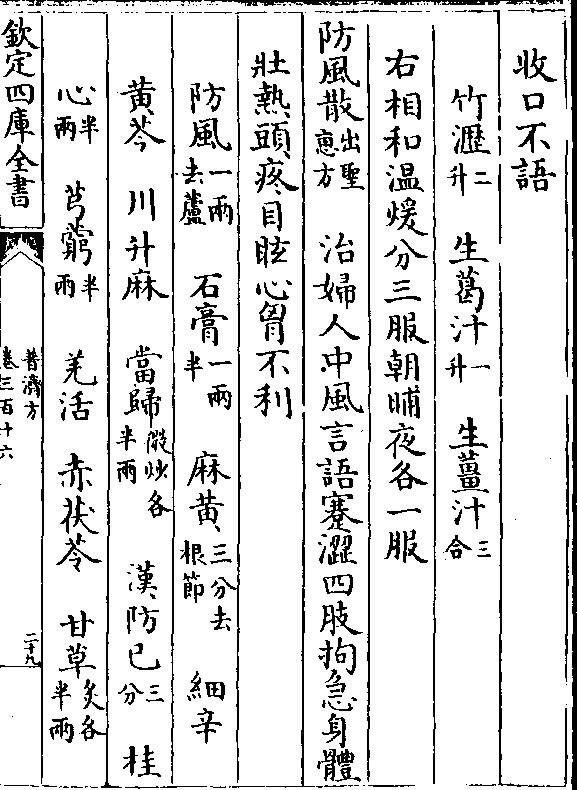 收口不語
竹瀝二升 生葛汁一升 生薑汁三合
右相和温煖分三服朝晡夜各一服
防風散出聖惠方 治婦人中風言語蹇澀四肢拘急身體
壯熱頭疼目眩心胷不利
防風一兩去蘆 石膏一兩半 麻黄三分去根節 細辛
黄芩 川升麻 當歸微炒各半兩 漢防已三分 桂
心半兩 芎藭半兩 羌活 赤茯苓 甘草炙各半兩
欽定四庫全書
普濟方
卷三百十六
二十九